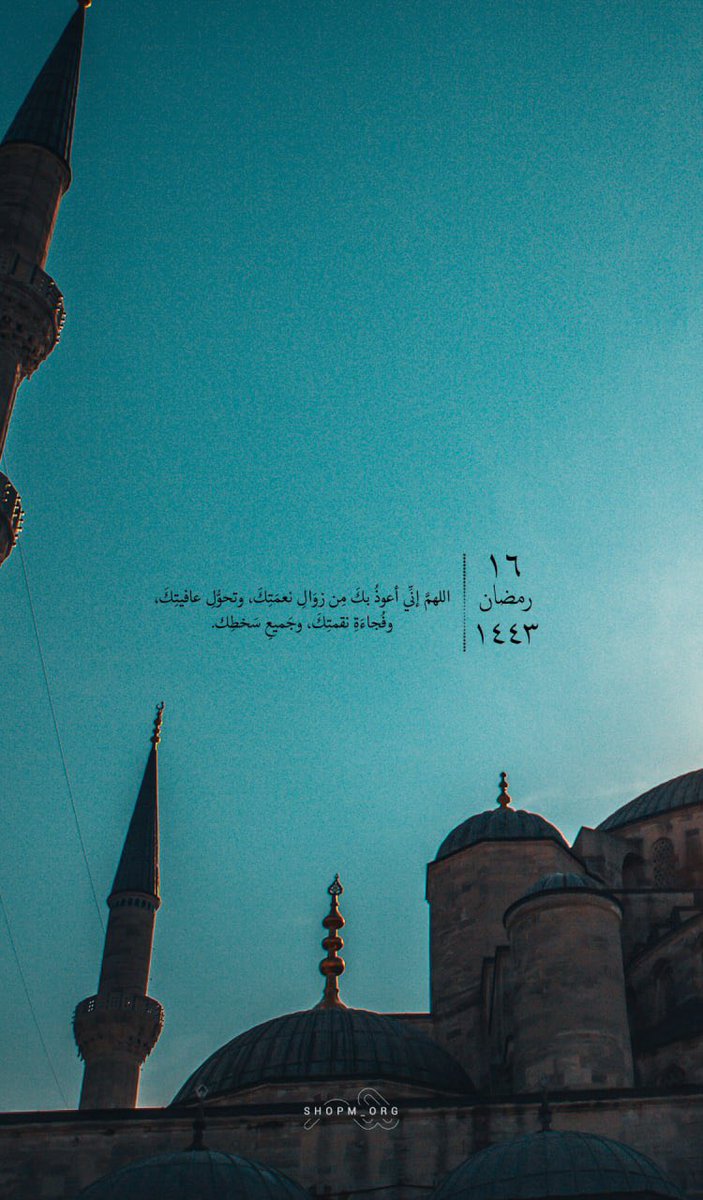 ١٦
رمضان
١٤٤٣
اللهمَّ إنِّي أعوذُ بكَ مِن زوَالِ نعمَتِكَ، وتحوُّلِ عافيتِكَ،
وفُجاءَةِ نقمتِكَ، وجَميعِ سَخطِك.
SHOPM_ORG